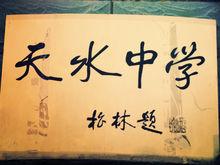 天水中学
柏林题